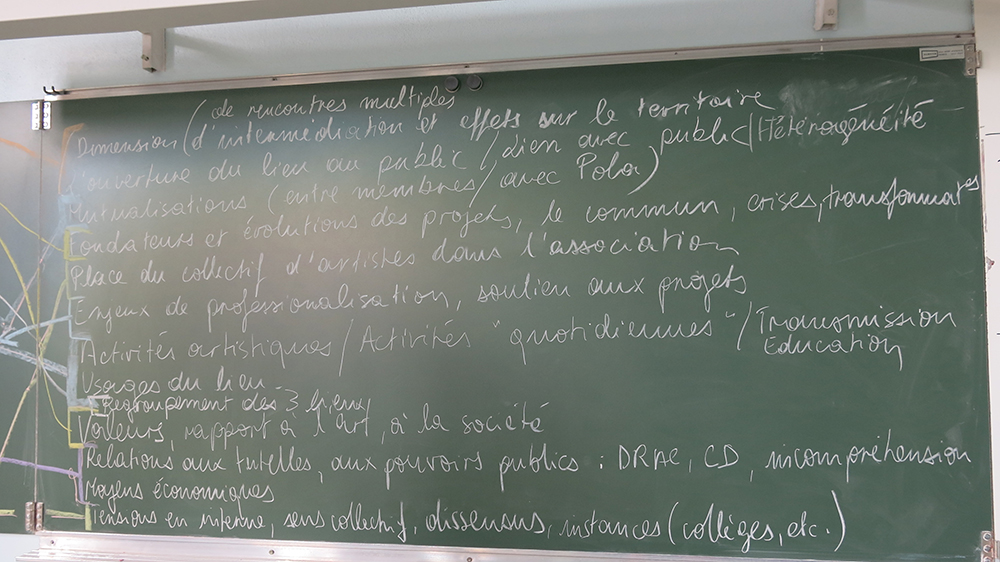 (de rencontres multiples
Dimension (d'intermédiation et effets sur le territoire
L'ouverture du lieu au public / Lien avec public / Hétérogénéité
Mutualisations (entre membres / avec Pola)
Fondateurs et évolutions des projets, le commun, crises, transformat°s
Place du collectif d'artistes dans l'association
Enjeux de professionalisation, soutien aux projets
Activités artistiques / Activités "quotidiennes" / Transmission
Education
Usages du lieu
Regroupement des 3 lieux
Valeurs, rapport à l'art, à la société
Relations aux tutelles, aux pouvoirs publics : DRAC, CD, incompréhension
Moyens économiques
Tensions en interne, sens collectif, dissensus, instances (collèges, etc.)